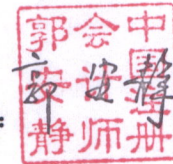 中国注册
会计师
郭安静
: